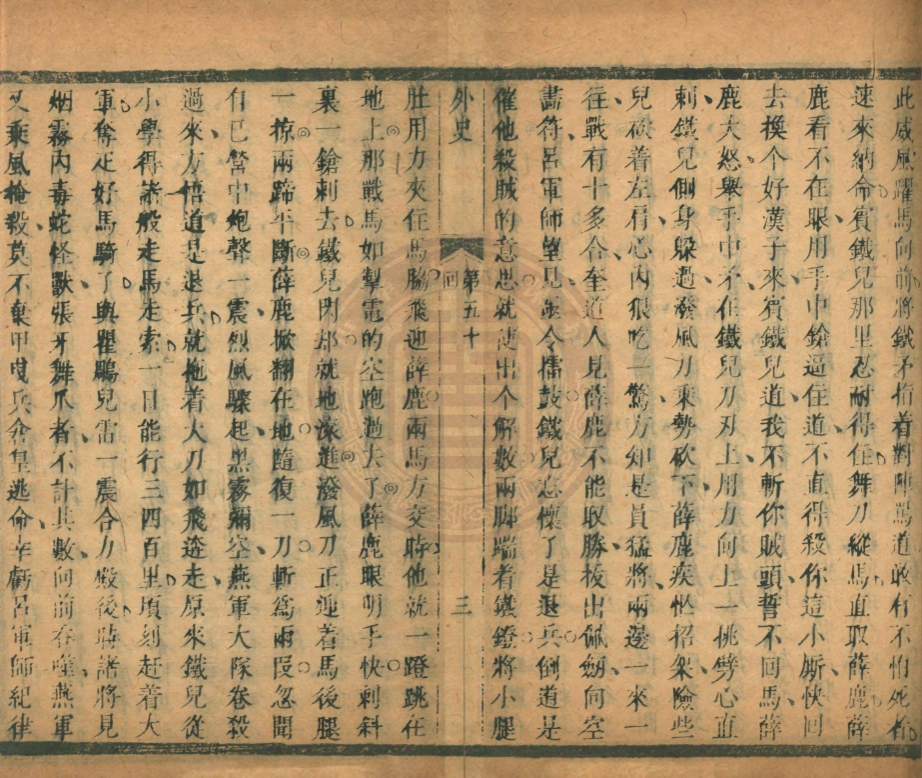 此威風躍馬向前將鐵矛指着對陣罵道敢有不怕死者
速來納命賓鐵兒那里忍耐得住舞刀縱馬直取薛鹿薛
鹿看不在眼用手中鎗逼住道不直得殺你這小厮快回
去換个好漢子來賓鐵兒道我不斬你賊頭誓不回馬薛
鹿大怒舉手中矛在鐵兒刀刃上用力向上一挑劈心直
刺鐵兒側身躱過潑風刀乘勢砍下薛鹿疾忙招架險些
兒砍着左肩心內狠吃一驚方知是員猛將兩邊一來一
往戰有十多合奎道人見薛鹿不能取勝板出佩劒向空
畫符呂軍師望見亟令擂鼓鐵兒忘懷了是退兵倒道是
催他殺賊的意思就使出个解數兩脚踹着鐵鐙將小腿
外史
第五十
回
三
肚用力夾住馬脇飛迎薛鹿兩馬方交時他就一蹬跳在
地上那戰馬如掣電的空跑過去了薛鹿眼明手快刺斜
裏一鎗刺去鐵兒閃却就地滚進潑風刀正迎着馬後腿
一掠兩蹄平斷薛鹿掀翻在地隨復一刀斬爲兩段忽聞
自己營中炮聲一震烈風驟起黑霧彌空燕軍大隊卷殺
過來方悟道是退兵就拖着大刀如飛迯走原來鐵兒從
小學得諸般走馬走索一日能行三四百里頃刻赶着大
軍奪疋好馬騎了與瞿鵰兒雷一震合力殿後時諸將見
烟霧內毒蛇怪獸張牙舞爪者不計其數向前吞噬燕軍
又乘風掩殺莫不棄甲曳兵倉皇逃命幸虧呂軍師紀律